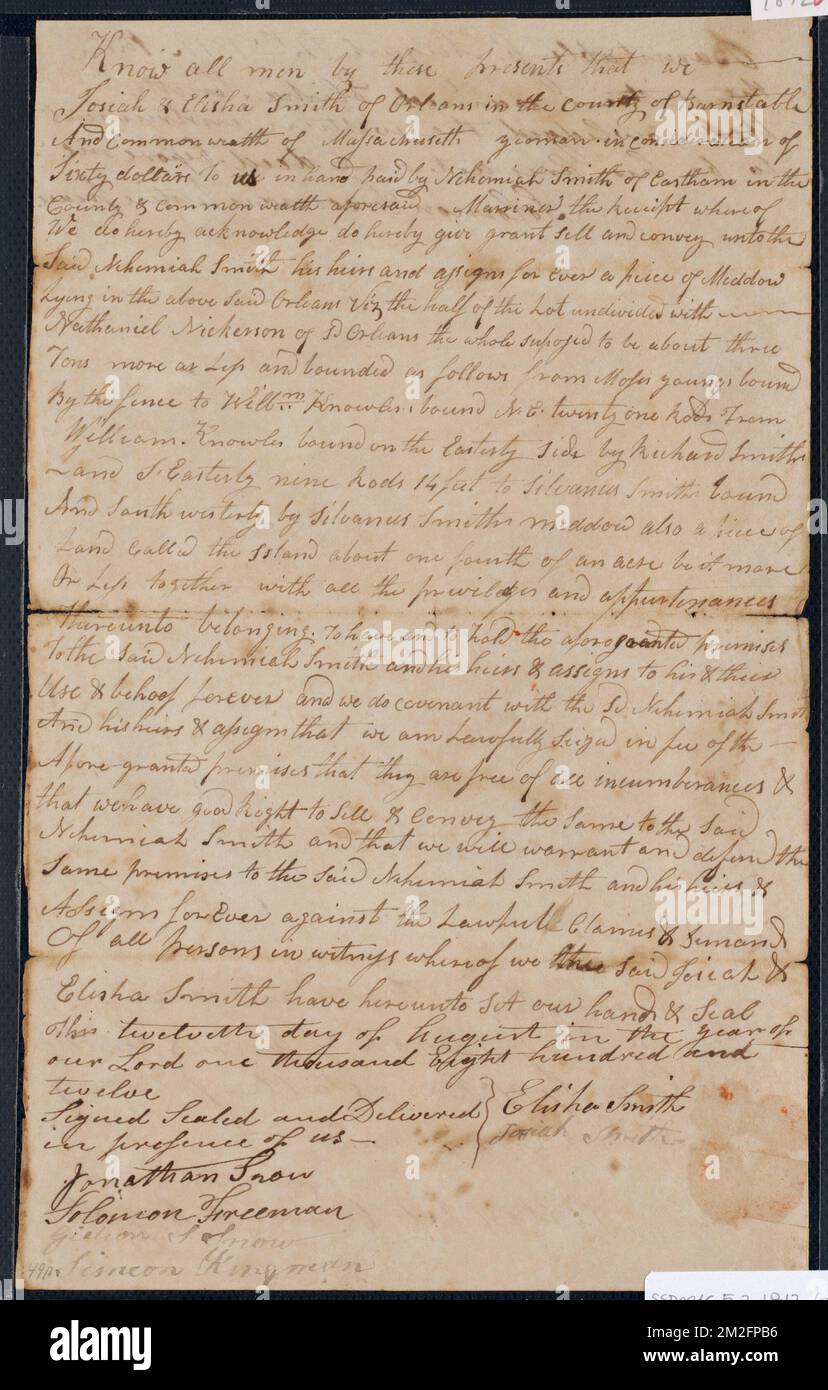 1812
Know all men by these presents that we
Josiah & Elisha Smith of Orleans in the county of Barnstable
And commonwealth of Massachusetts yeoman in consideration of
Sixty dollars to us in hand paid by Nehemiah Smith of Eastham in the
County & commonwealth aforesaid Marriner the receipt where of
We do hereby acknowledge do hereby give grant sell and convey unto the
Said Nehemiah Smith his heirs and assigns for ever a piece of Meddow
Lying in the above said Orleans Viz the half of the Lot undivided with
Nathaniel Nickerson of sd Orleans the whole suposed to be about three
Tons more or Less and bounded as follows from Moses youngs bound
By the fence to Willm Knowles bound N. E. twenty one Rods From
William Knowles bound on the Easterly Side by Richard Smiths
land S. Easterly nine Rods 14 feet to Silvanus Smiths bound
And South westerly by Silvanus Smiths meddow also a piece of
Land Called the Island about one fourth of an acre be it more
Or Less together with all the priviledges and appurtenances
thereunto belonging. To have and to hold the afore granted premises
To the said Nehemiah Smith and his heirs & assigns to his & their
Use & behoof forever and we do covenant with the sd Nehemiah Smith
And his heirs & assigns that we am Lawfully Seized in fee of the
Afore-granted premises that they are free of all incumberances &
that we have good Right to Sell & Convey the same to the said
Nehemiah Smith and that we will warrant and defend the
Same premises to the said Nehemiah Smith and his heirs &
Assigns for Ever against the Lawfull Claims & Demands
Of all Persons in witness where of we the said Josiah &
Elisha Smith have hereunto Set our hands & Seal
this twelveth day of August in the year of
our Lord one thousand Eight hundred and
twelve
Signed Sealed and Delivered } Elisha Smith
in presence of us Josiah Smith
Jonathan Snow
Solomon Freeman
Gideon S Snow
Simeon Kingman
alamy
Image ID: 2M2FPB6
www.alamy.com